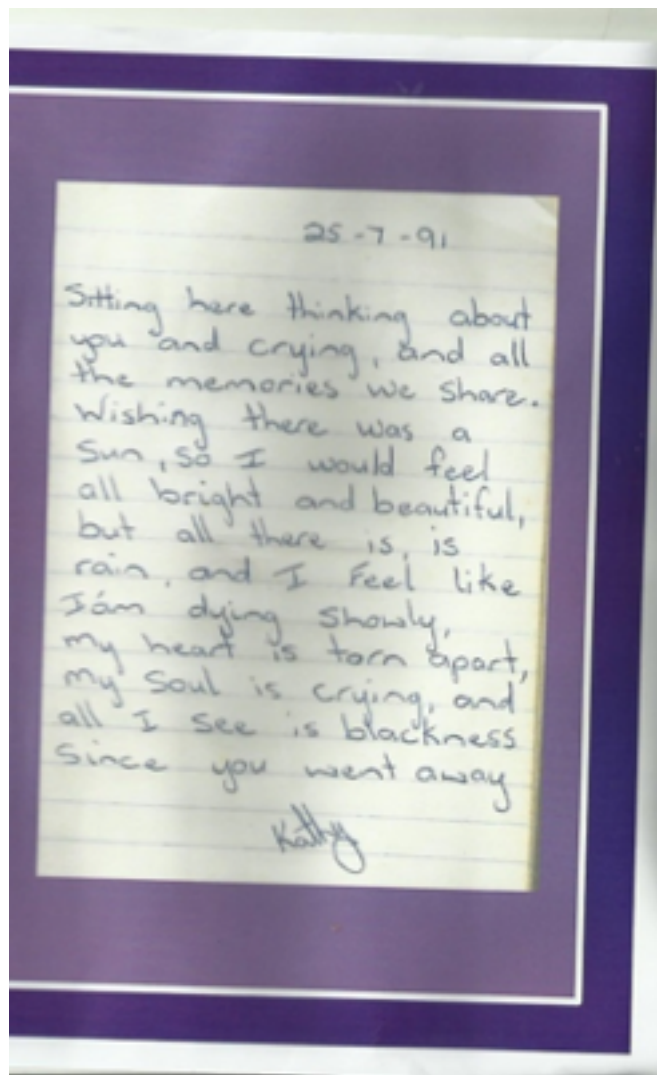 25-7-91
Sitting here thinking about
you and crying, and all
the memories we share.
Wishing there was a
Sun, so I would feel
all bright and beautiful,
but all there is, is
rain, and I feel like
I'am dying showly,
my heart is torn apart,
my soul is crying, and
all I see is blackness
since you went away
Kathy